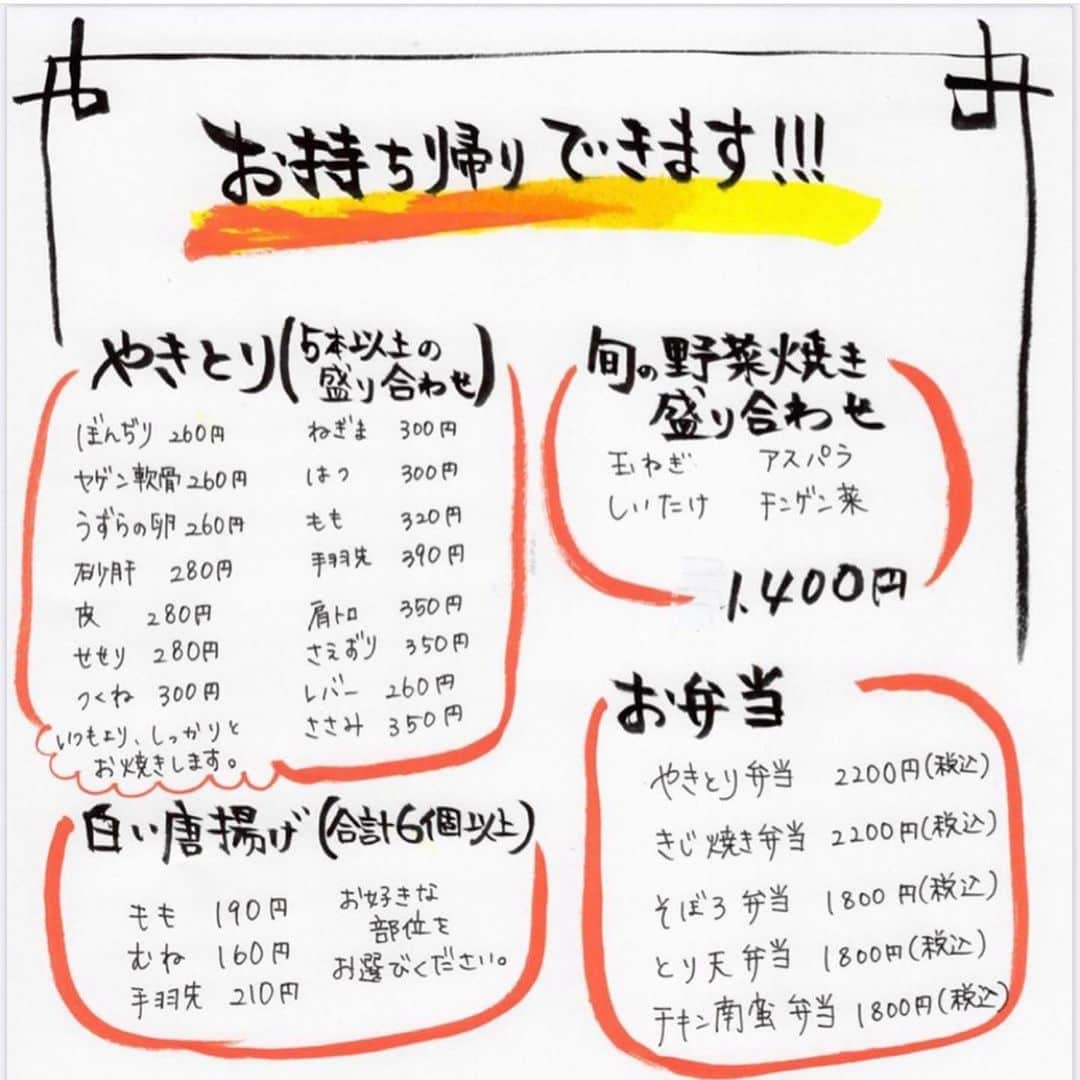 お持ち帰りできます!!!
やきとり(5本以上の盛り合わせ)
ぼんぢり 260円
ヤゲン軟骨 260円
うずらの卵 260円
砂肝 280円
皮 280円
せせり 280円
つくね 300円
ねぎま 300円
はつ 300円
もも 320円
手羽先 390円
肩トロ 350円
さえずり 350円
レバー 260円
ささみ 350円
いつもより、しっかりと
お焼きします。
旬の野菜焼き
盛り合わせ
玉ねぎ アスパラ
しいたけ チンゲン菜
1,400円
白い唐揚げ(合計6個以上)
もも 190円
むね 160円
手羽先 210円
お好きな
部位を
お選びください。
お弁当
やきとり弁当 2200円(税込)
きじ焼き弁当 2200円(税込)
そぼろ弁当 1800円(税込)
とり天弁当 1800円(税込)
チキン南蛮弁当 1800円(税込)